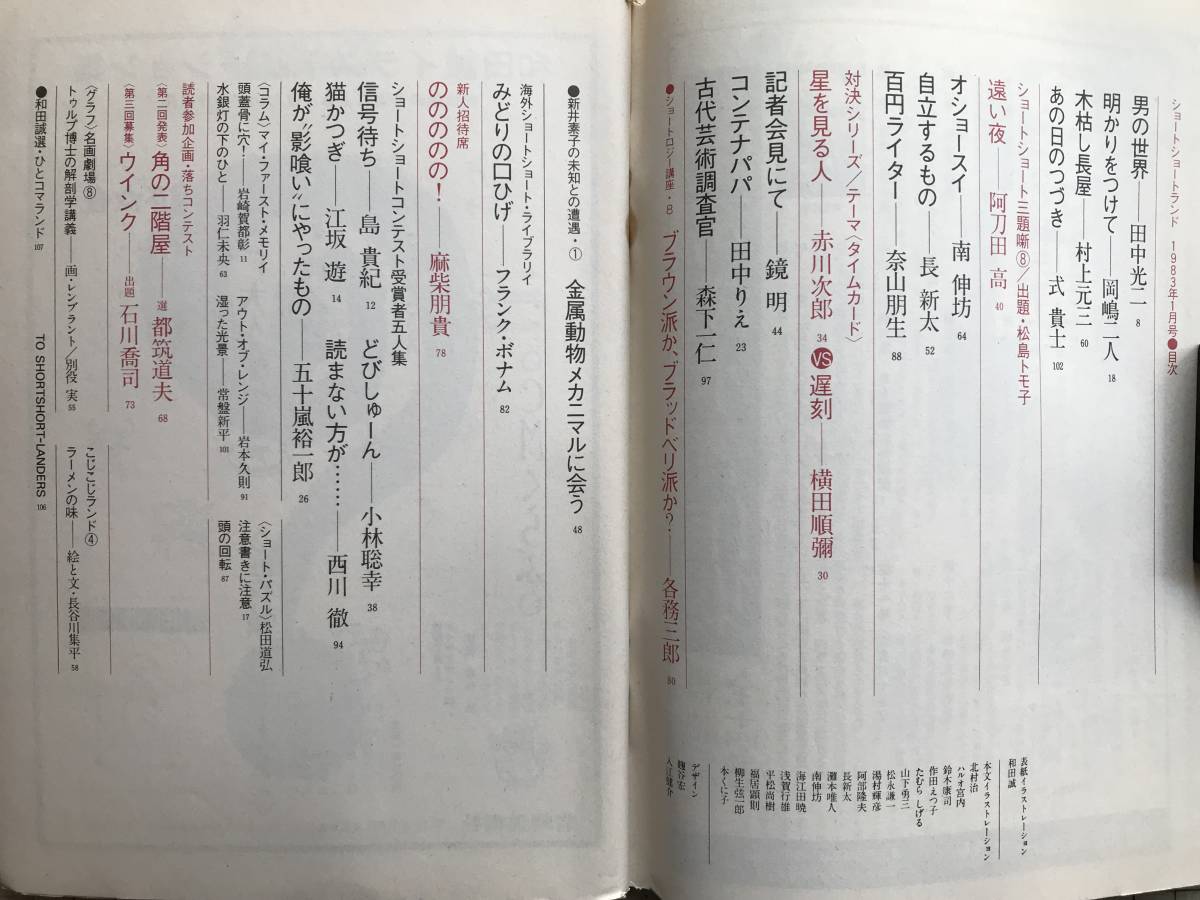 ショートショートランド 1983年1月号●目次
男の世界――田中光二 8
明かりをつけて――岡嶋二人 18
木枯し長屋――村上元三 60
あの日のつづき――式 貴士 102
ショートショート三題噺⑧/出題・松島トモ子
遠い夜 阿刀田 高 40
オショースイ――南 伸坊 64
自立するもの――長 新太 52
百円ライター――奈山朋生 88
対決シリーズ/テーマ〈タイムカード〉
星を見る人――赤川次郎 34 VS 遅刻――横田順彌 30
記者会見にて――鏡 明 44
コンテナパパ――田中りえ 23
古代芸術調査官――森下一仁 97
●ショートロジー講座・8 ブラウン派か、ブラッドベリ派か?――各務三郎 80
表紙イラストレーション
和田誠
本文イラストレーション
北村治
ハルオ宮内
鈴木康司
作田えつ子
たむら しげる
山下勇三
松永謙一
湯村輝彦
阿部隆夫
長新太
灘本唯人
南伸坊
海江田暁
浅賀行雄
平松尚樹
福居顕則
柳生弦一郎
本くに子
デザイン
麹谷宏
入江健介
●新井素子の未知との遭遇・① 金属動物メカニマルに会う 48
海外ショートショート・ライブラリイ
みどりの口ひげ――フランク・ボナム 82
新人招待席
のののののの! 麻柴朋貴 78
ショートショートコンテスト受賞者五人集
信号待ち――島 貴紀 12 どびしゅーん――小林聡幸 38
猫かつぎ――江坂 遊 14 読まない方が……――西川 徹 94
俺が〝影喰い〟にやったもの――五十嵐裕一郎 26
〈コラム〉マイ・ファースト・メモリイ
頭蓋骨に穴!――岩崎賀都彰 11 アウト・オブ・レンジ――岩本久則 91
水銀灯の下のひと――羽仁未央 63 湿った光景――常盤新平 101
〈ショート・パズル〉松田道弘
注意書きに注意 17
頭の回転 87
読者参加企画・落ちコンテスト
〈第二回発表〉角の二階屋 選 都筑道夫 68
〈第三回募集〉ウインク――出題 石川喬司 73
〈グラフ〉名画劇場⑧
トゥルプ博士の解剖学講義――画・レンブラント/別役 実 55
こじこじランド④
ラーメンの味――絵と文・長谷川集平 58
●和田誠選・ひとコマランド 107
TO SHORTSHORT-LANDERS 106